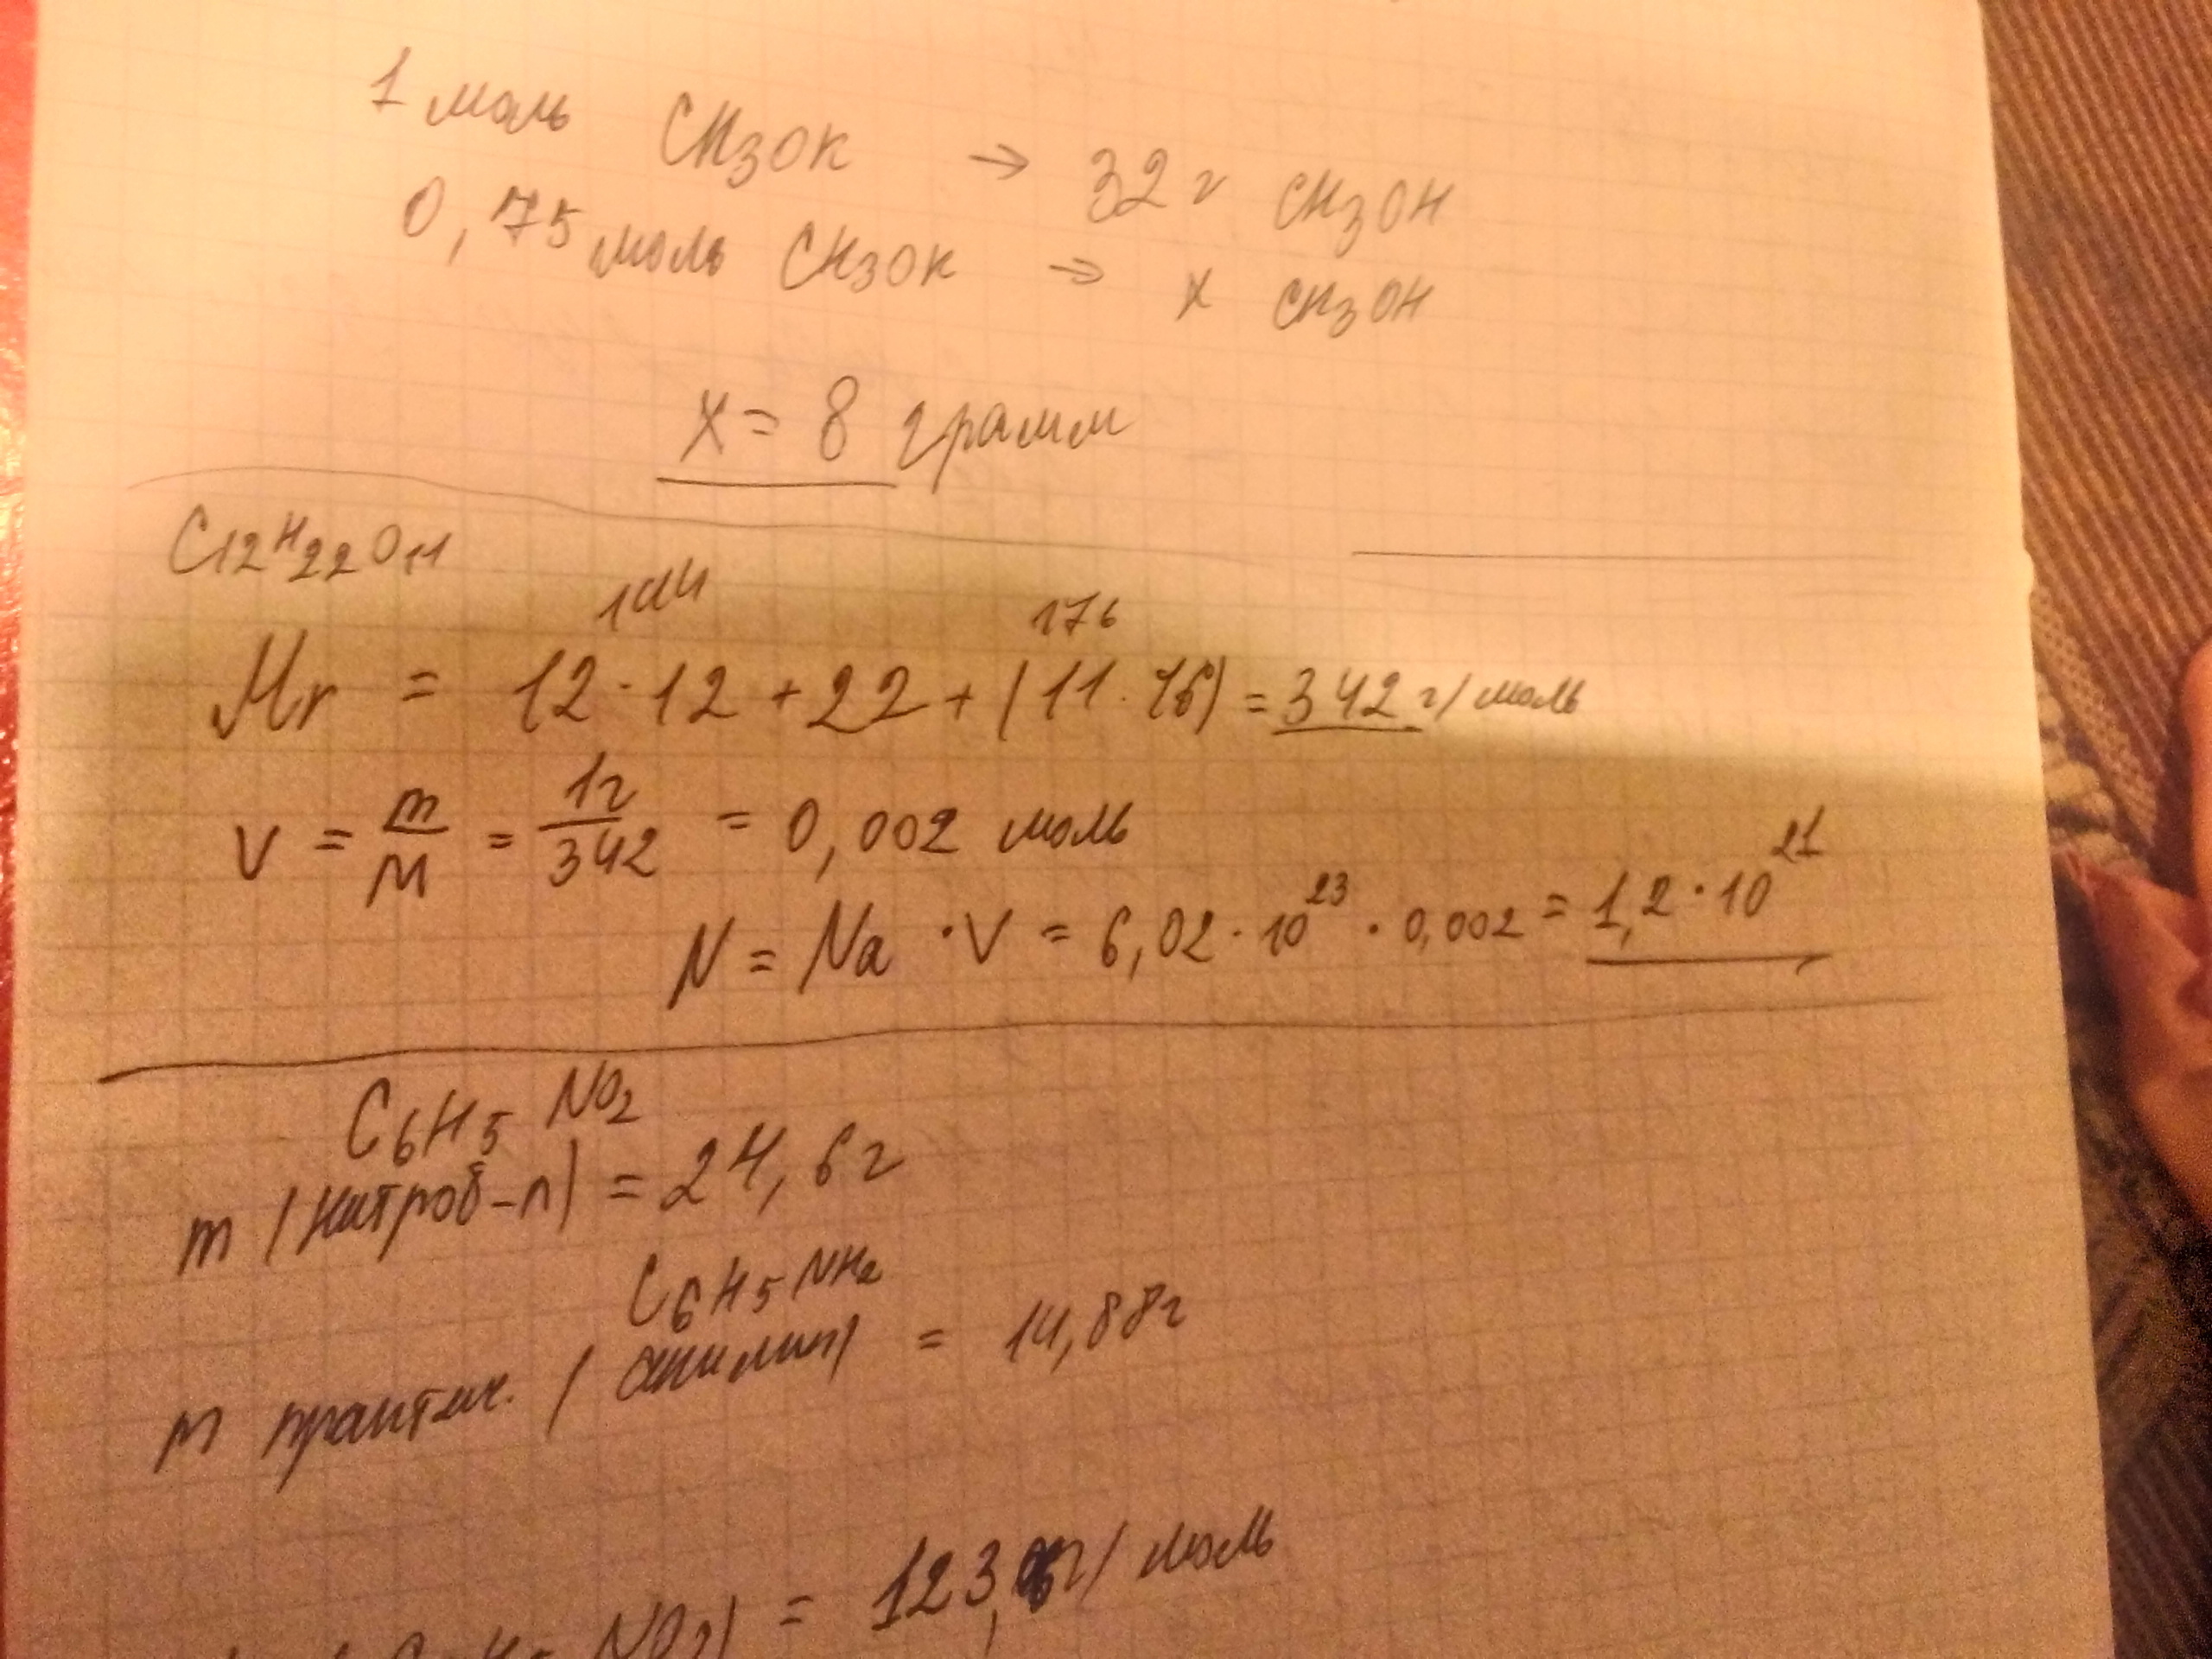 1 моль CH3OK → 32 г CH3OH
0,75 моль CH3OK → x CH3OH
x = 8 грамм
C12H22O11
144 176
Mr = 12·12 + 22 + (11·16) = 342 г/моль
ν = m/M = 1г/342 = 0,002 моль
N = Na · ν = 6,02·10^23 · 0,002 = 1,2·10^21
C6H5NO2
m (нитроб-л) = 24,6 г
C6H5NH2
m практич. (анилин) = 14,88 г
NO2) = 123, г/моль